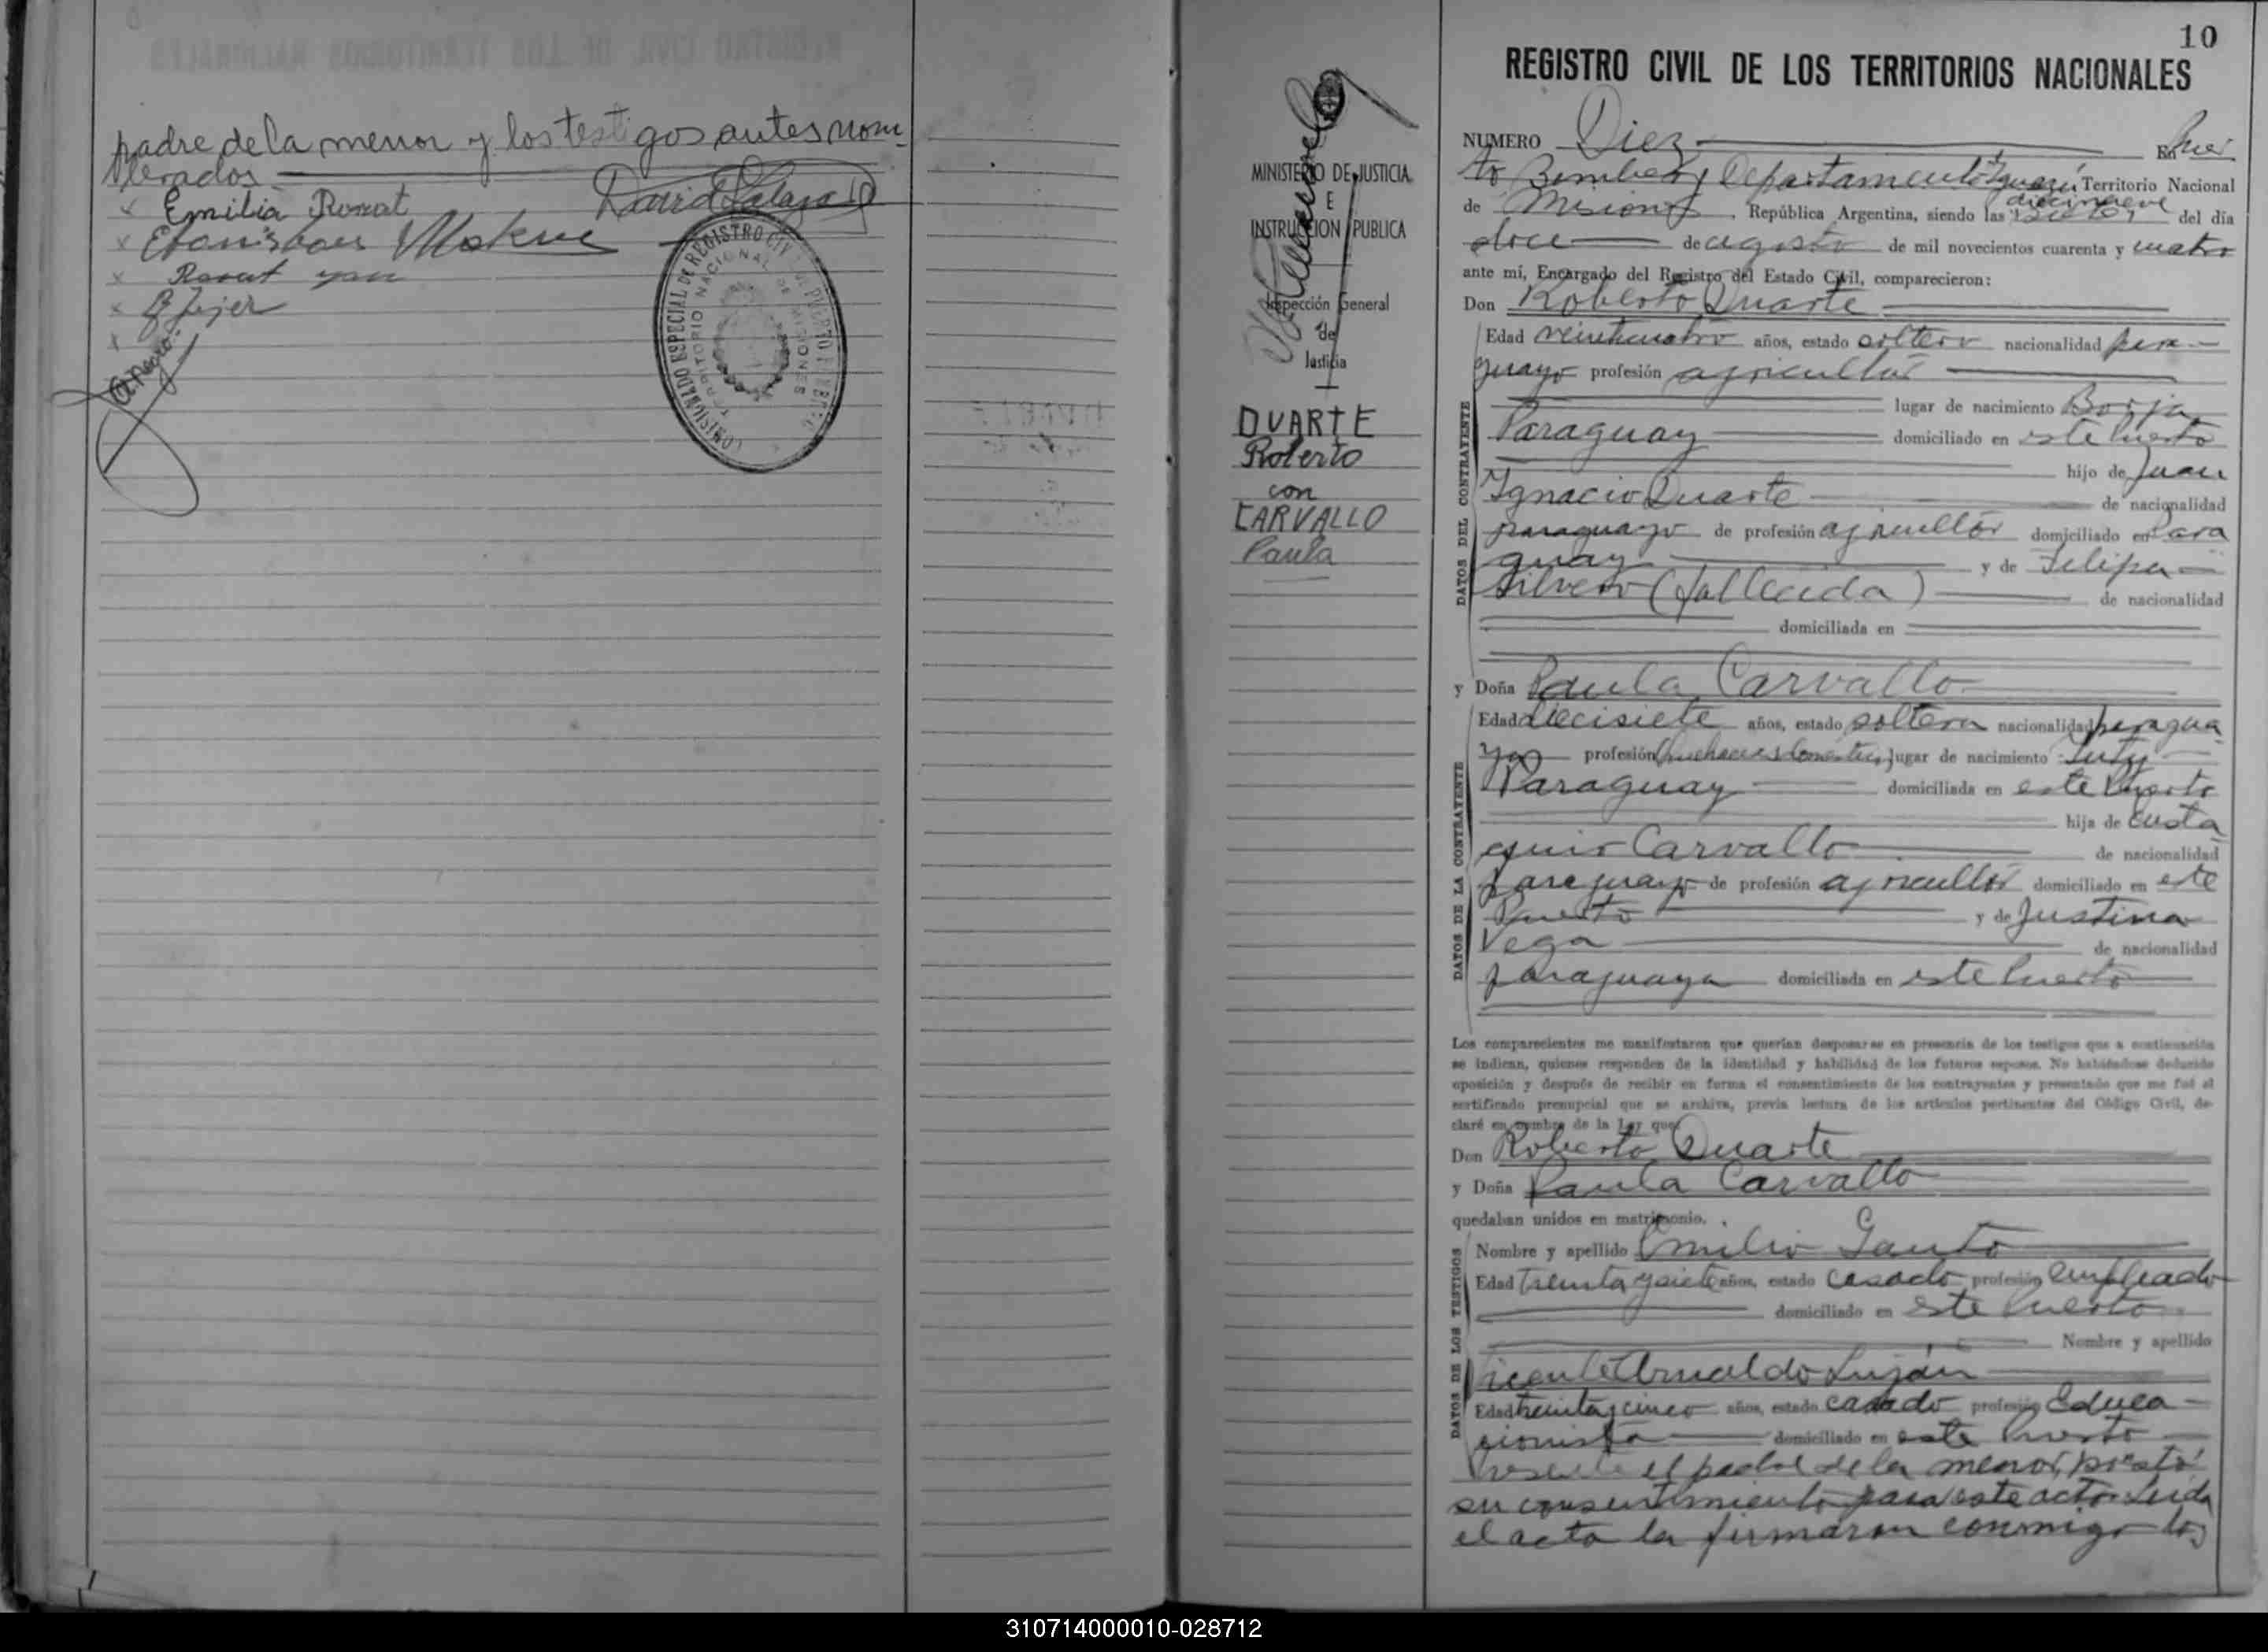 padre de la menor y los testigos antes nom-
brados
Emilia Ronat
David Salazar
Ronat
COMISIONADO ESPECIAL DE REGISTRO CIVIL DE PUERTO BEMBERG
TERRITORIO NACIONAL DE MISIONES
MINISTERIO DE JUSTICIA
E
INSTRUCCION PUBLICA
Inspección General
de
Justicia
DUARTE
Roberto
con
CARVALLO
Paula
10
REGISTRO CIVIL DE LOS TERRITORIOS NACIONALES
NUMERO Diez En Puer
to Bemberg Departamento Iguazú Territorio Nacional
de Misiones, República Argentina, siendo las diecinueve del día
doce de agosto de mil novecientos cuarenta y cuatro
ante mí, Encargado del Registro del Estado Civil, comparecieron:
Don Roberto Duarte
DATOS DEL CONTRAYENTE
Edad veinticuatro años, estado soltero nacionalidad para-
guayo profesión agricultor
lugar de nacimiento Borja
Paraguay domiciliado en este Puerto
hijo de Juan
Ignacio Duarte de nacionalidad
paraguayo de profesión agricultor domiciliado en Para
guay y de Felipa
Silvero (fallecida) de nacionalidad
domiciliada en
y Doña Paula Carvallo
DATOS DE LA CONTRAYENTE
Edad diecisiete años, estado soltera nacionalidad paragua
ya profesión quehaceres domesticos lugar de nacimiento Yuty
Paraguay domiciliada en este Puerto
hija de Eusta
quio Carvallo de nacionalidad
paraguayo de profesión agricultor domiciliado en este
Puerto y de Justina
Vega de nacionalidad
paraguaya domiciliada en este Puerto
Los comparecientes me manifestaron que querían desposarse en presencia de los testigos que a continuación
se indican, quienes responden de la identidad y habilidad de los futuros esposos. No habiéndose deducido
oposición y después de recibir en forma el consentimiento de los contrayentes y presentado que me fué el
certificado prenupcial que se archiva, previa lectura de los artículos pertinentes del Código Civil, de-
claré en nombre de la Ley que:
Don Roberto Duarte
y Doña Paula Carvallo
quedaban unidos en matrimonio.
DATOS DE LOS TESTIGOS
Nombre y apellido Emilio Gauto
Edad treinta y siete años, estado casado profesión empleado
domiciliado en este Puerto
Nombre y apellido
Vicente Arnaldo Luján
Edad treinta y cinco años, estado casado profesión Educa-
cionista domiciliado en este Puerto
Presente el padre de la menor, prestó
su consentimiento para este acto. Leida
el acta la firmaron conmigo los
310714000010-028712